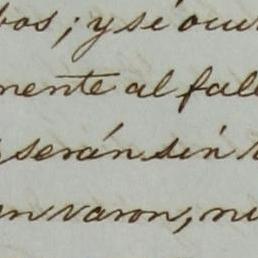 bos; y si ocu
mente al fall
serán sin
un varon, ni